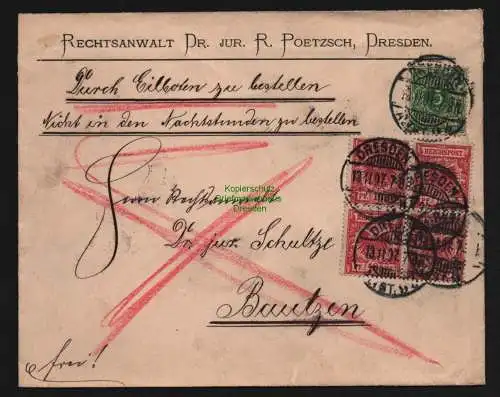 RECHTSANWALT DR. JUR. R. POETZSCH, DRESDEN.
Durch Eilboten zu bestellen
Nicht in den Nachtstunden zu bestellen
DRESDEN
13.11.97. 7-8
REICHSPOST
Kopierschutz
Herrn Rechtsanwalt
Dr. jur. Schultze
Bautzen
frei!